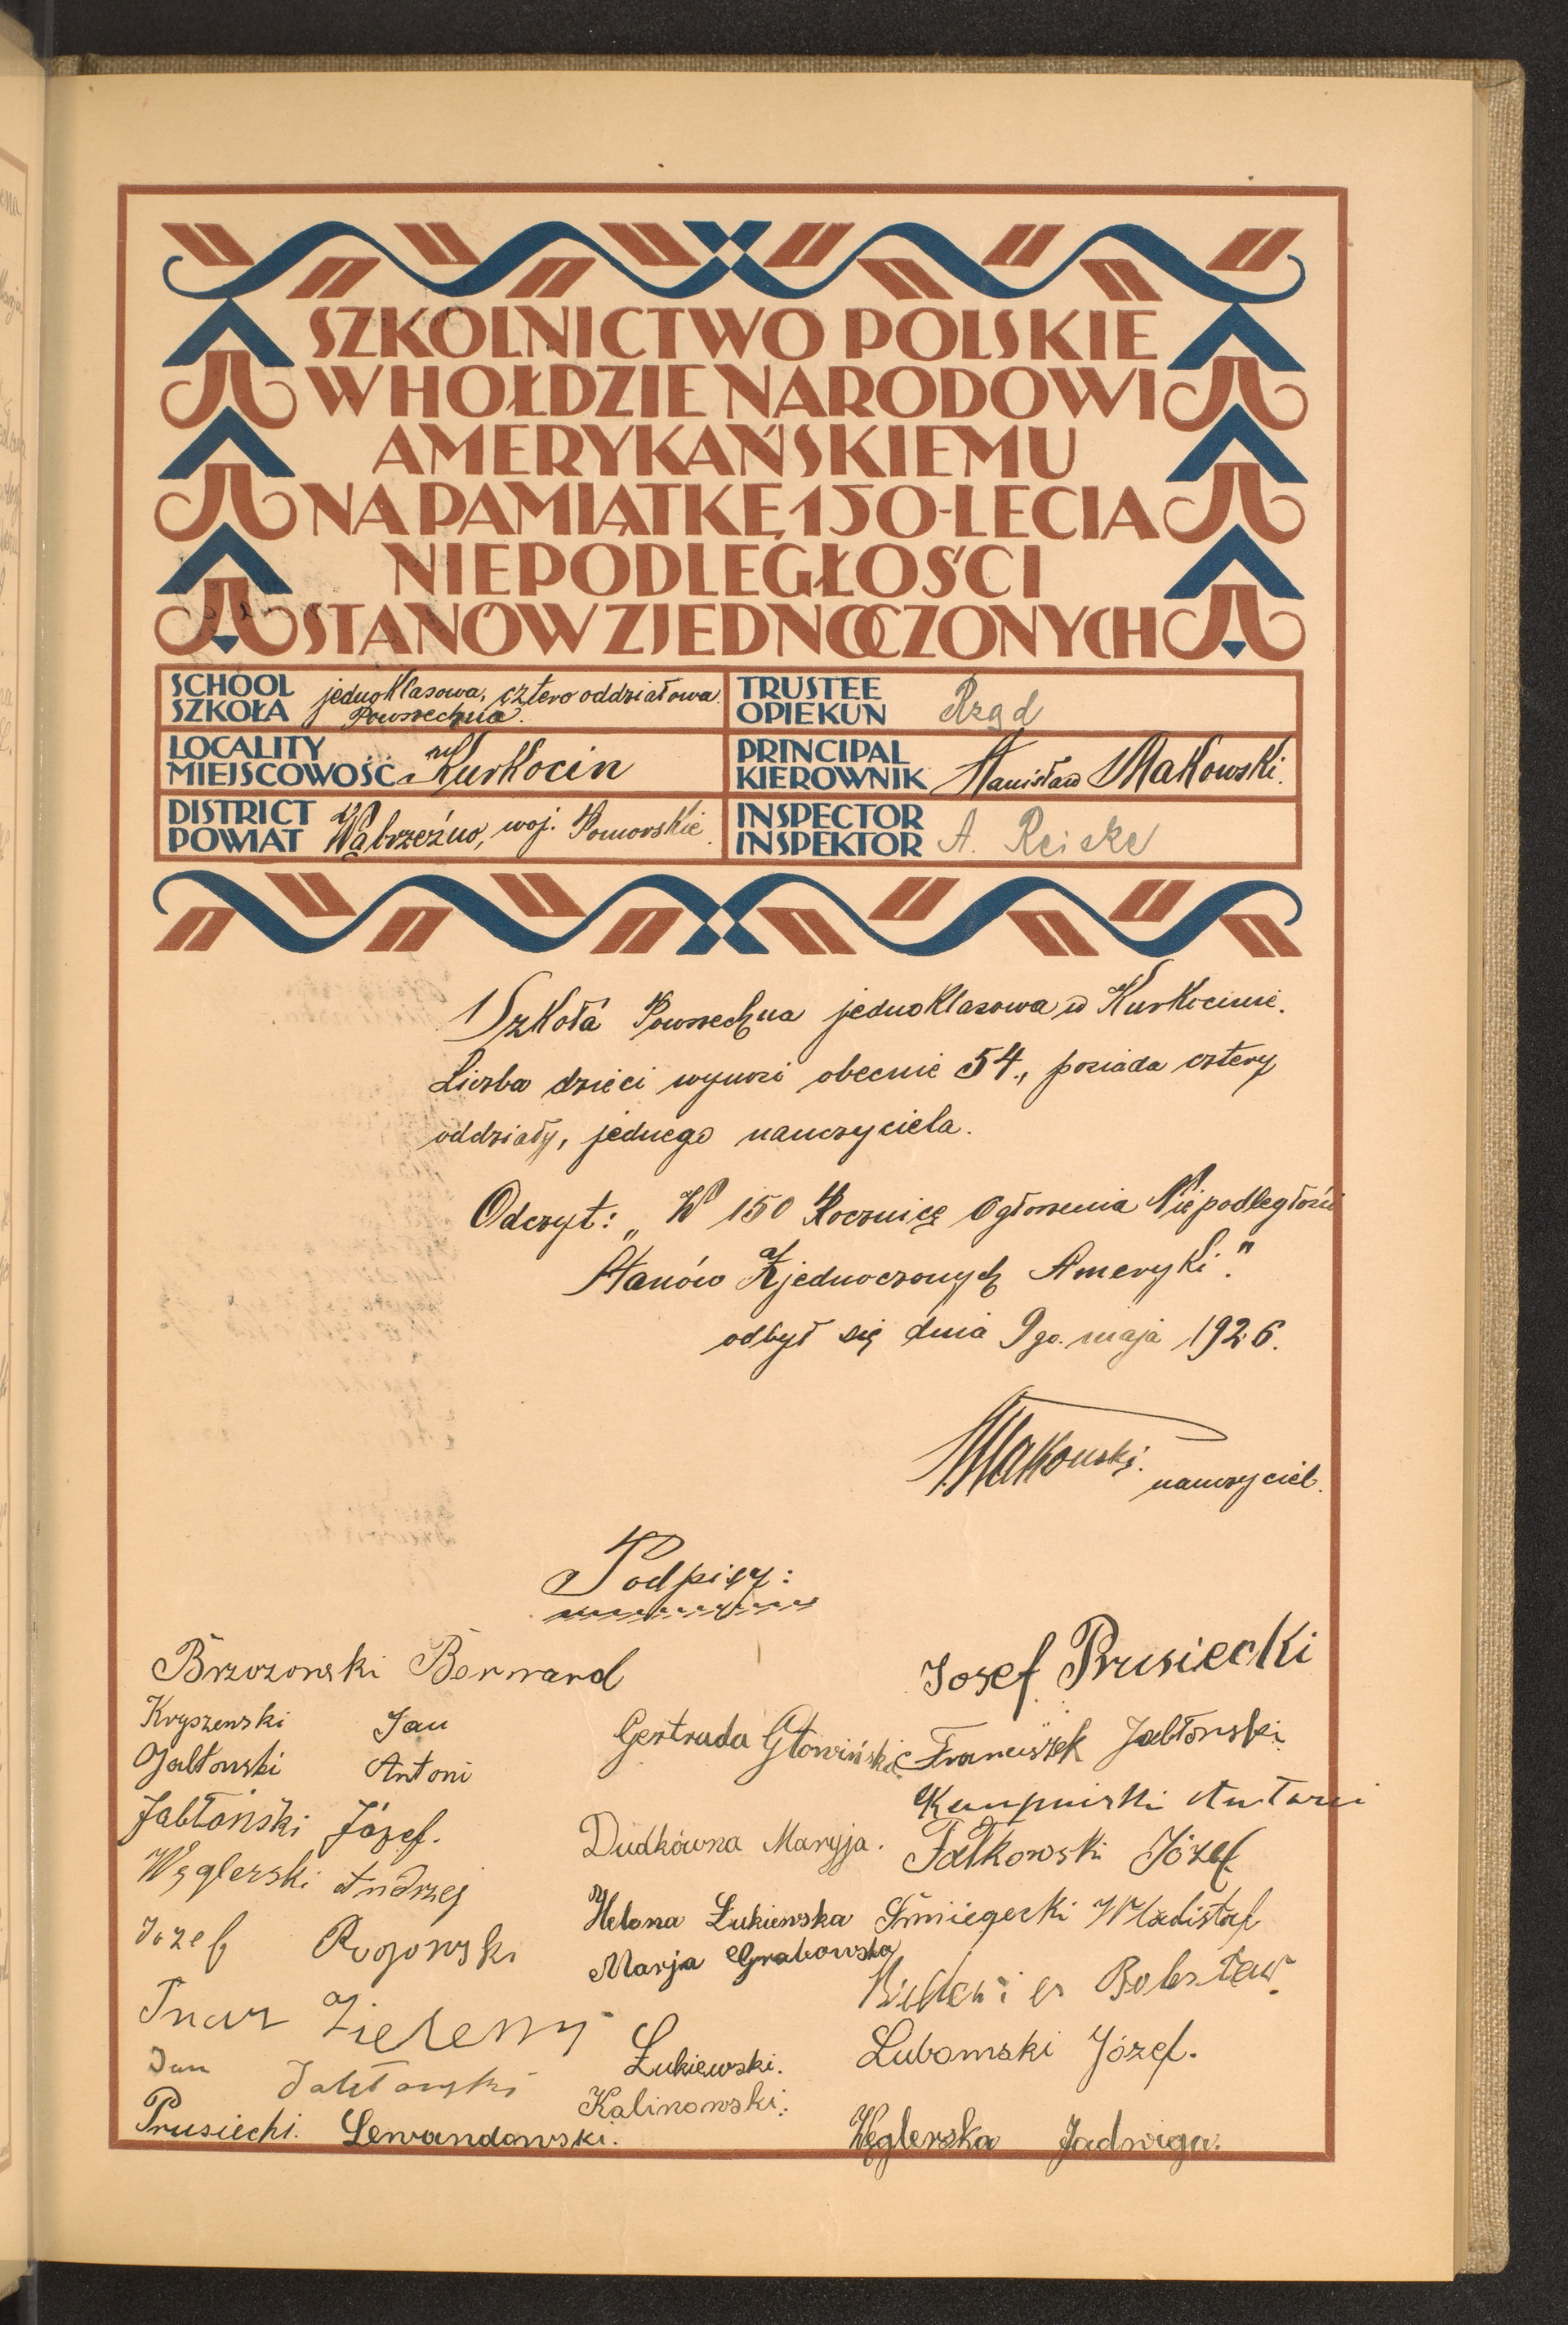 SZKOLNICTWO POLSKIE
W HOŁDZIE NARODOWI
AMERYKAŃSKIEMU
NA PAMIĄTKĘ 150-LECIA
NIEPODLEGŁOŚCI
STANÓW ZJEDNOCZONYCH
SCHOOL
SZKOŁA
jednoklasowa, cztero oddziałowa
Powszechna.
TRUSTEE
OPIEKUN
Rząd
LOCALITY
MIEJSCOWOŚĆ
Kurkocin
PRINCIPAL
KIEROWNIK
Stanisław Makowski.
DISTRICT
POWIAT
Wąbrzeźno, woj. Pomorskie.
INSPECTOR
INSPEKTOR
A. Reiske
Szkoła Powszechna jednoklasowa w Kurkocinie.
Liczba dzieci wynosi obecnie 54., posiada cztery
oddziały, jednego nauczyciela.
Odczyt: „W 150 Rocznicę Ogłoszenia Niepodległości
Stanów Zjednoczonych Ameryki."
odbył się dnia 9go. maja 1926.
Makowski.
nauczyciel.
Podpisy:
Brzozowski Bernard
Kryszewski Jan
Jabłonski Antoni
Jabłoński Józef.
Węglerski Andrzej
Jozef Rogowski
Zieleny
Jan Jabłonski
Prusiecki. Lewandowski.
Gertruda Głowińska
Dudkówna Maryja.
Helena Łukiewska
Marja Grabowska
Łukiewski.
Kalinowski.
Josef Prusiecki
Franciszek Jabłonski
Antoni
Fałkowski Józef
Śmiegecki Władisław
Bolesław.
Lubomski Józef.
Węglerska Jadwiga.